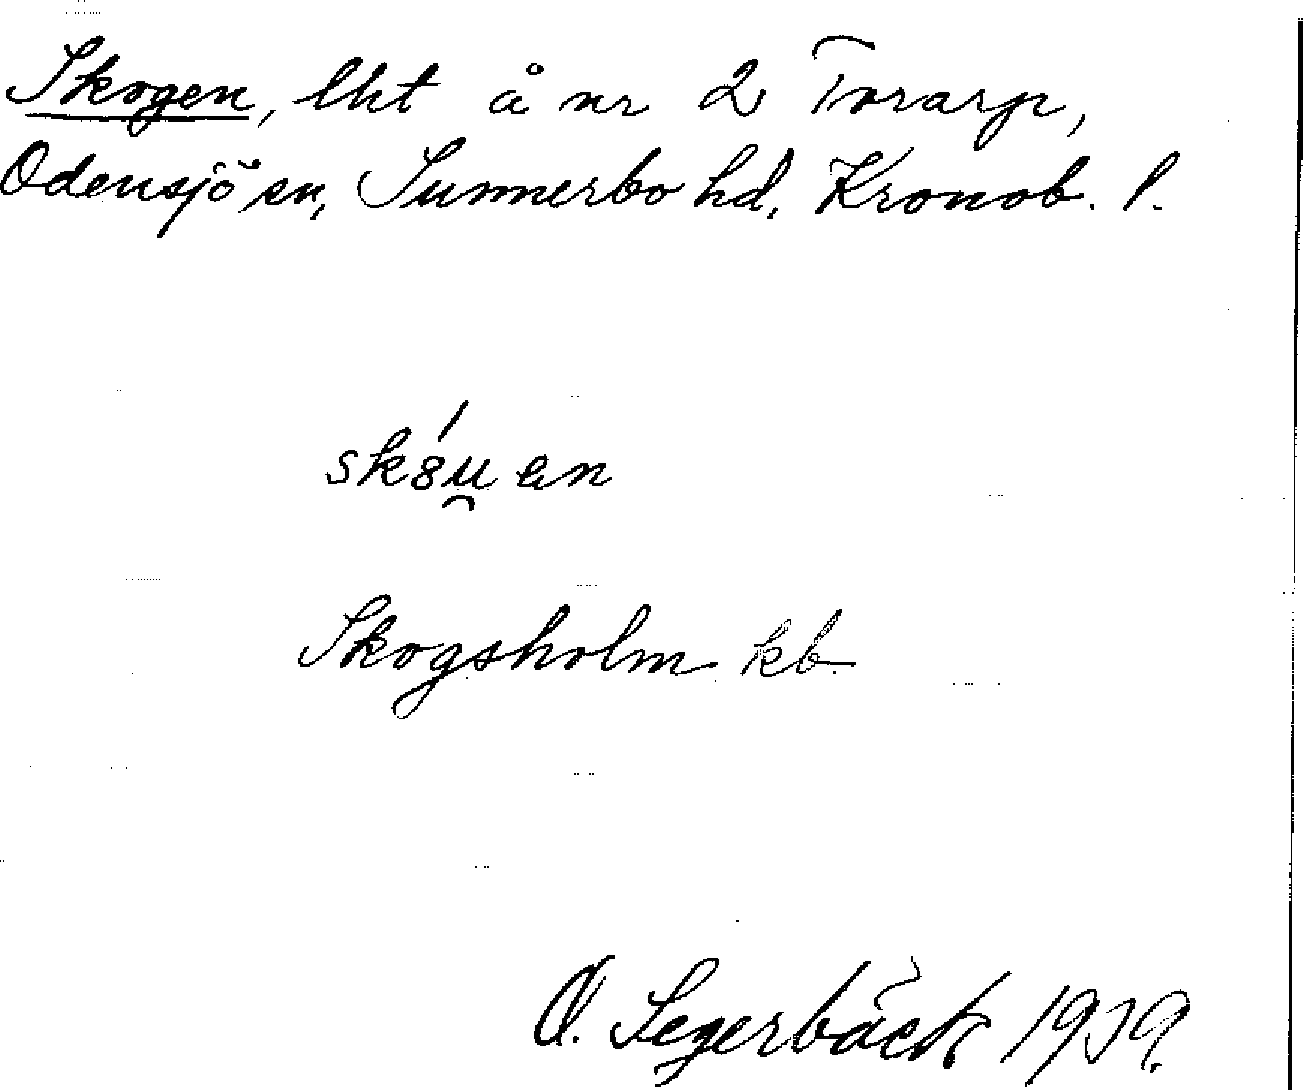 Skogen, lht å nr 2 Torarp,
Odensjö sn, Sunnerbo hd, Kronob. l.
Skogsholm kb
O. Segerbäck 1939.